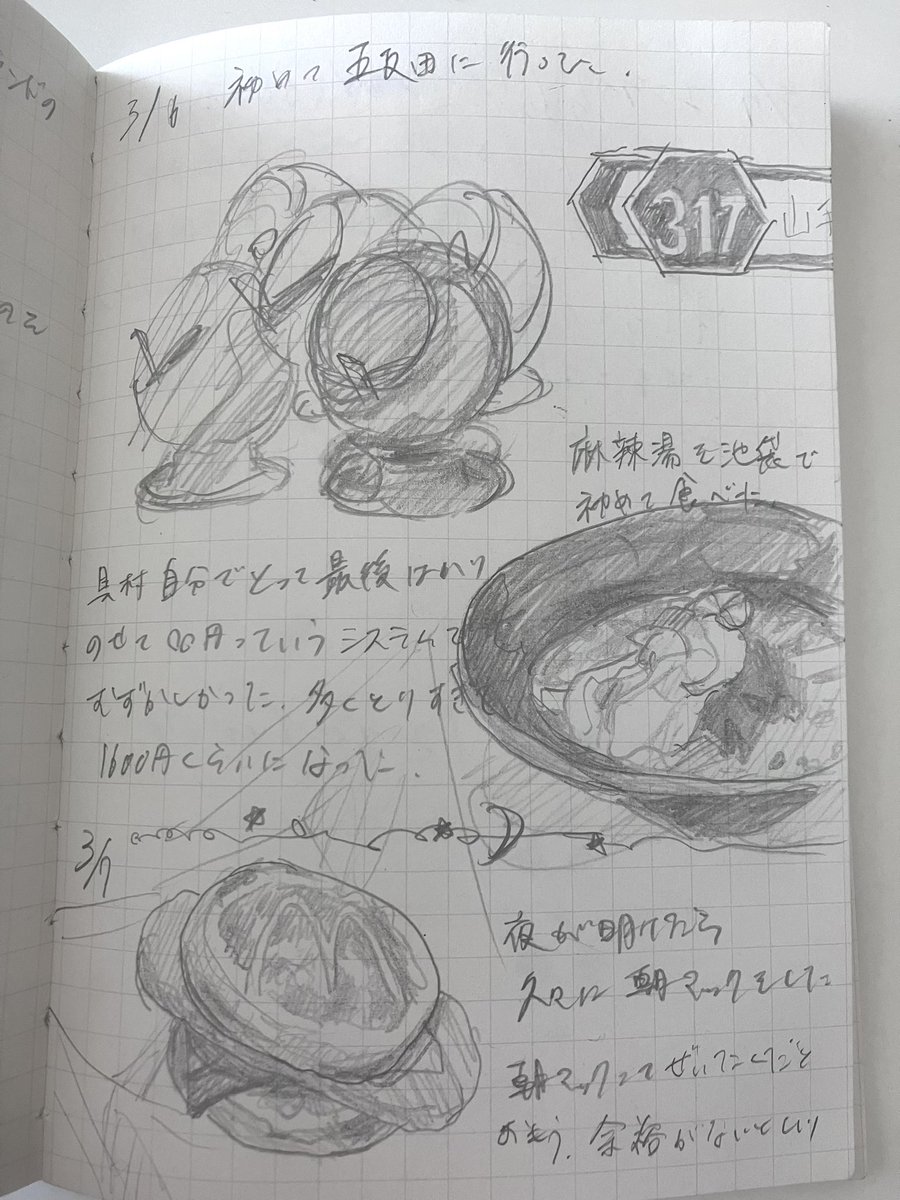 ンドの
のそ
3/6 初めて 五反田に 行った.
317 山手
麻辣湯を池袋で
初めて食べた.
具材自分でとって最後はかり
のせて〇〇円っていうシステムで
むずかしかった. 多くとりすぎて
1600円くらいになった.
3/7
夜が明けたら
久々に 朝マックをした
朝マックってぜいたくだと
おもう. 余裕がないといい